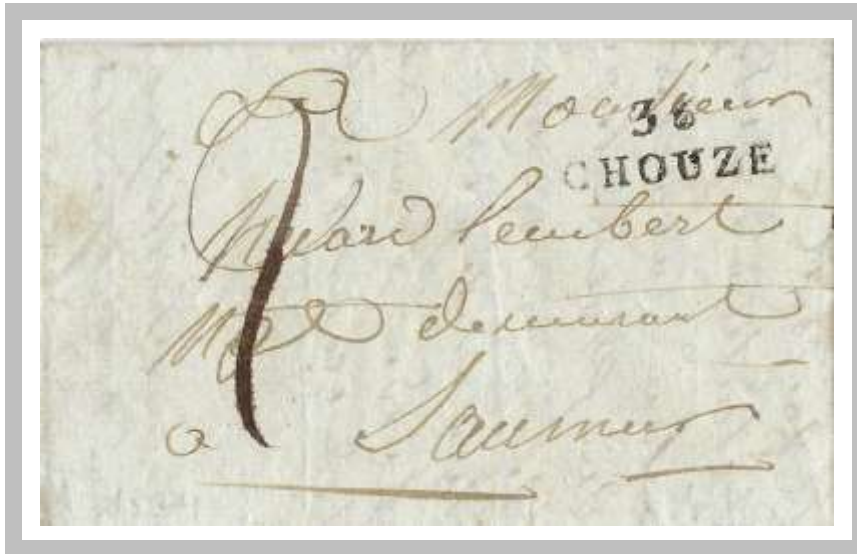 A Monsieur
36
CHOUZE
Lambert
Md demeurant
a Saumur